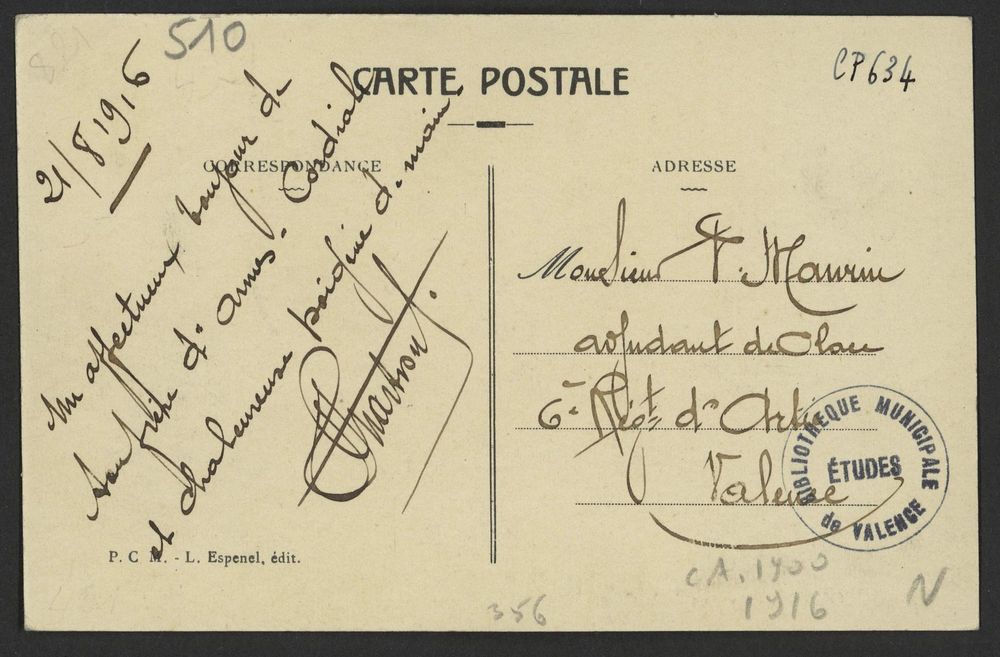 510
CP634
CARTE POSTALE
CORRESPONDANCE
ADRESSE
21/8 1916
Un affectueux bonjour de
ton frère d'armes. Cordiale
et chaleureuse poignée de main
Monsieur F. Maurin
adjudant de Clase
6e Régt d'Artie
Valence
BIBLIOTHEQUE MUNICIPALE
ÉTUDES
de VALENCE
P. C M. - L. Espenel, édit.
CA. 1900
1916
N
356